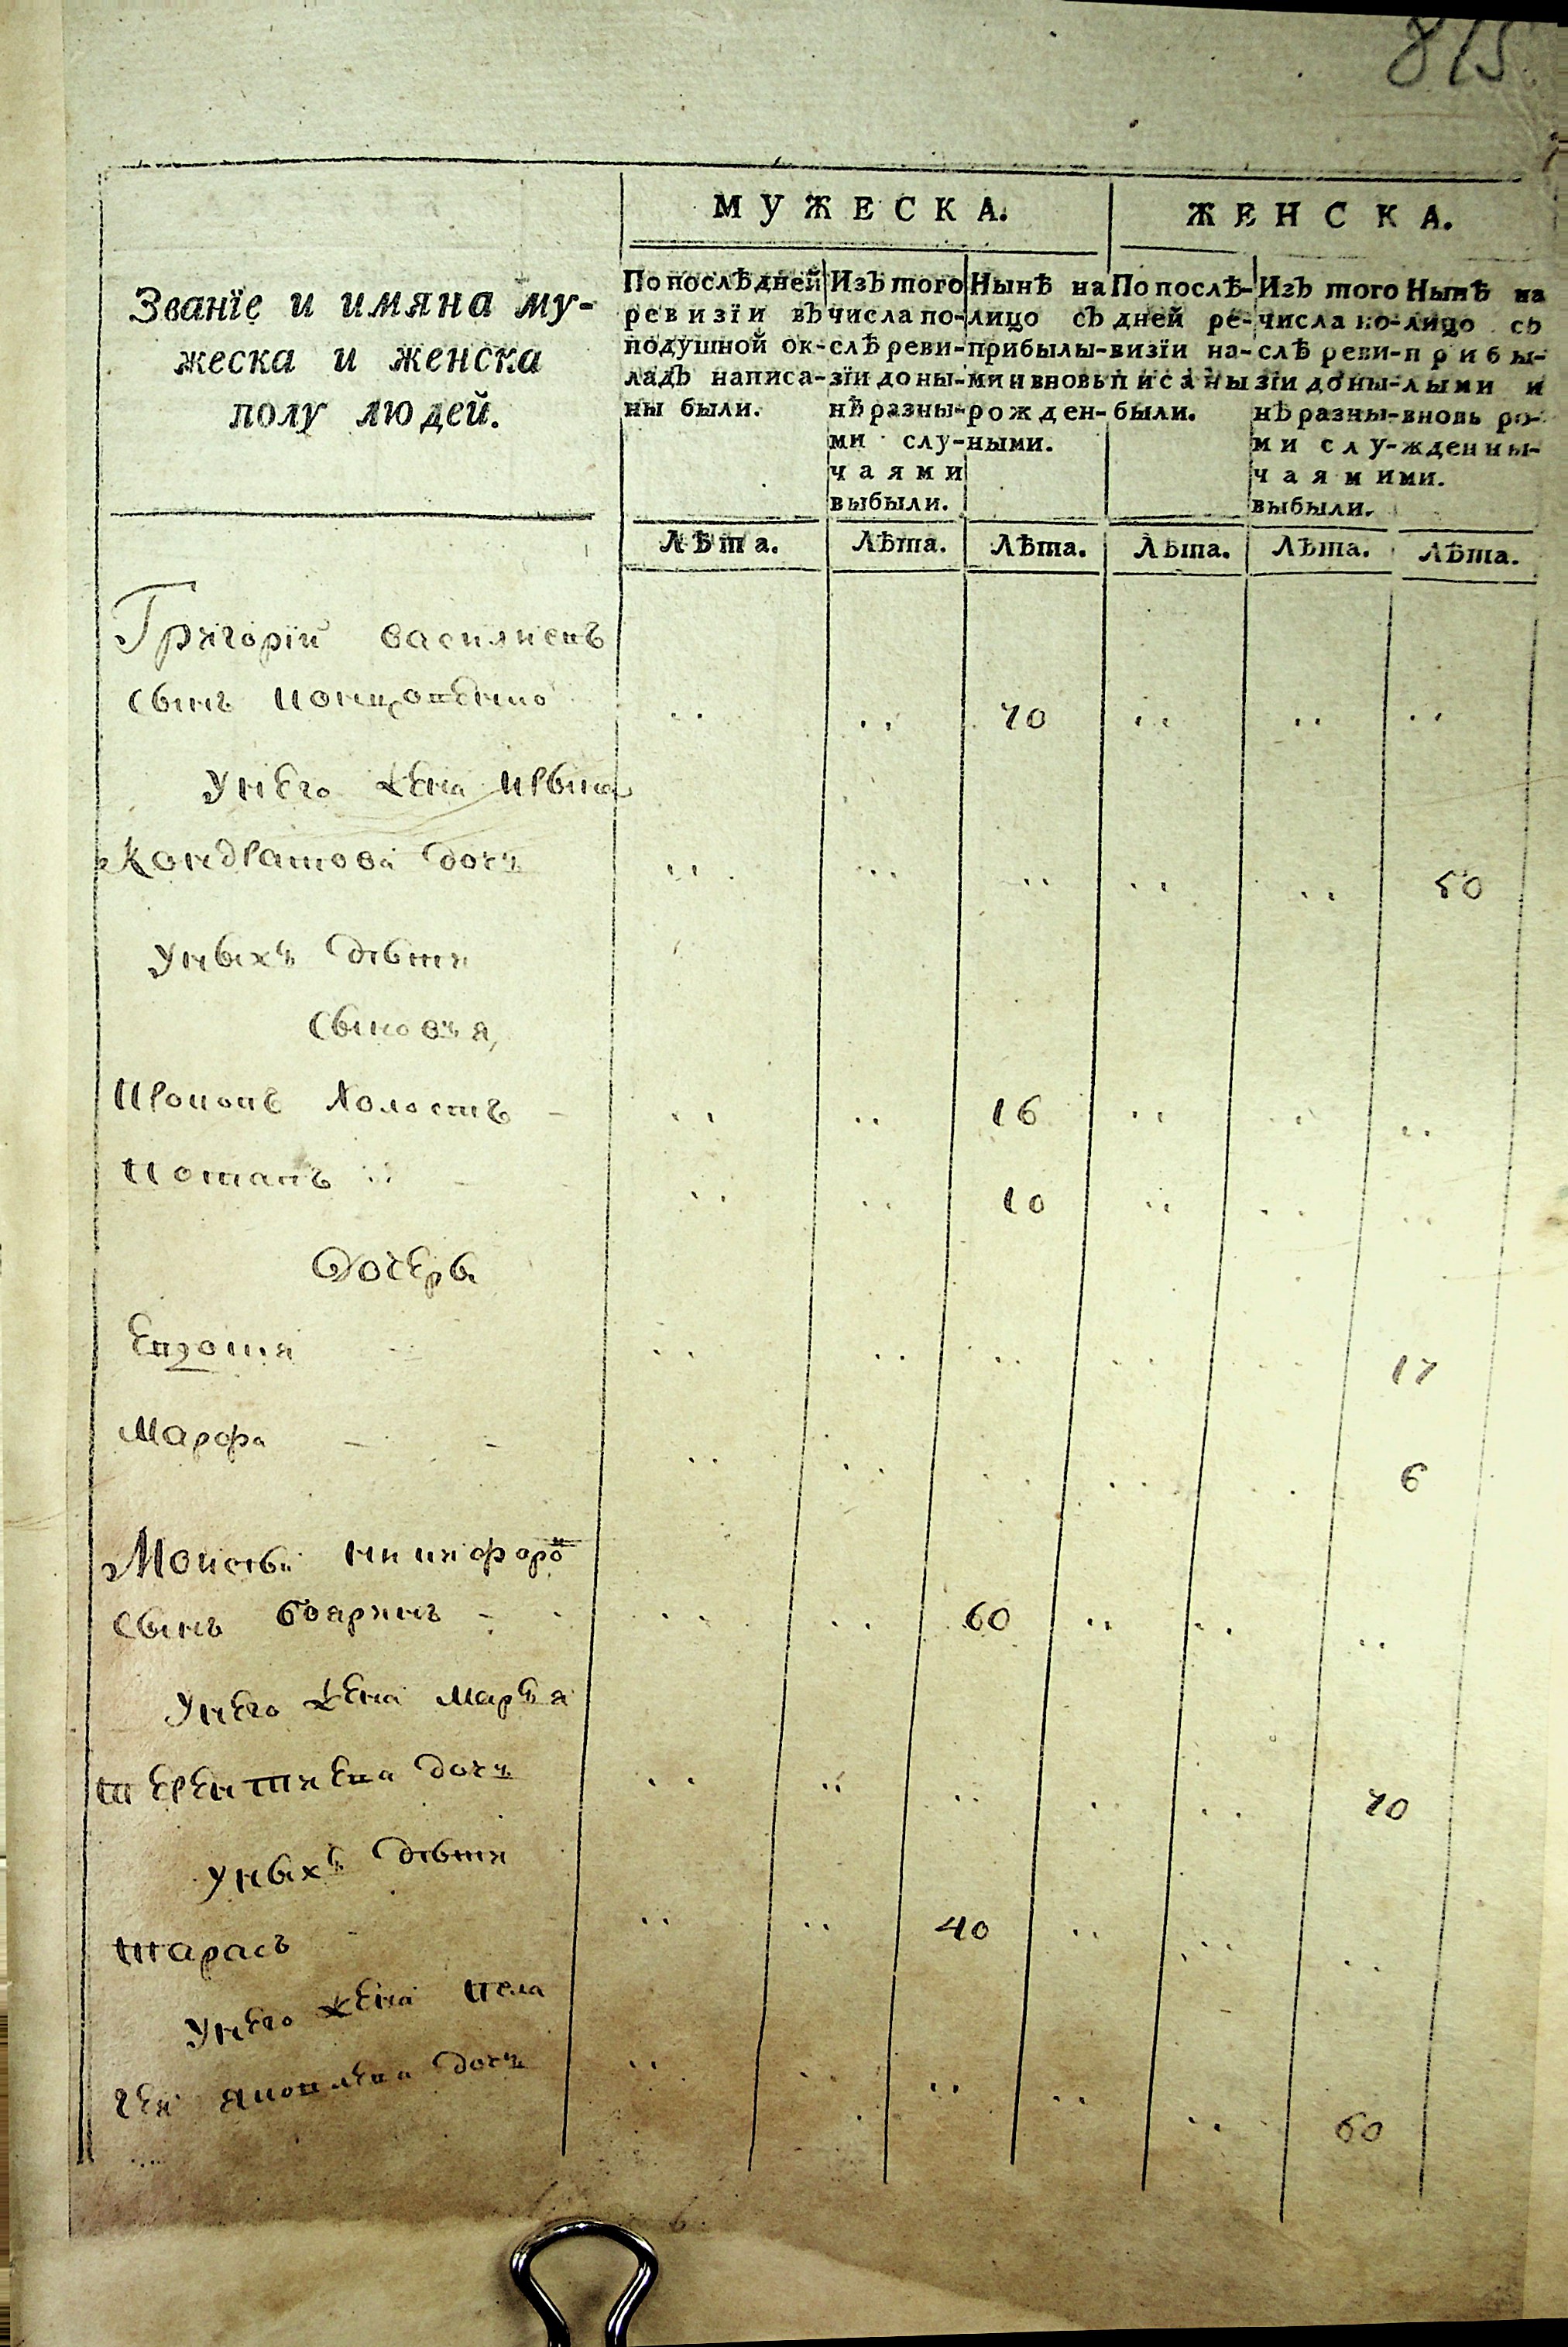 815
МУЖЕСКА.
ЖЕНСКА.
Званїе и имяна му-
жеска и женска
полу людей.
По послѣдней
ревизїи въ
подушной ок-
ладъ написа-
ны были.
Изъ того
числа по-
слѣ реви-
зїи до ны-
нѣ разны-
ми слу-
чаями
выбыли.
Нынѣ на
лицо съ
прибылы-
ми и вновь
рожден-
ными.
По послѣ-
дней ре-
визїи на-
писаны
были.
Изъ того
числа по-
слѣ реви-
зїи до ны-
нѣ разны-
ми слу-
чаями
выбыли.
Нынѣ на
лицо съ
прибы-
лыми и
вновь ро-
жденны-
ми.
Лѣта. Лѣта. Лѣта. Лѣта. Лѣта. Лѣта.
Григорїи васильевъ
сынъ 70
унего жена
Кондратова дочь 50
уныхъ дѣти
сыновья
Прокопъ холостъ 16
Потапъ 10
Дочеры
Евдотя 17
Марфа 6
Моисѣи никифоро
сынъ бояринъ 60
унего жена марья
терентиева дочь 70
уныхъ дѣти
тарасъ 40
унего жена пела
гея яковлева дочь 60